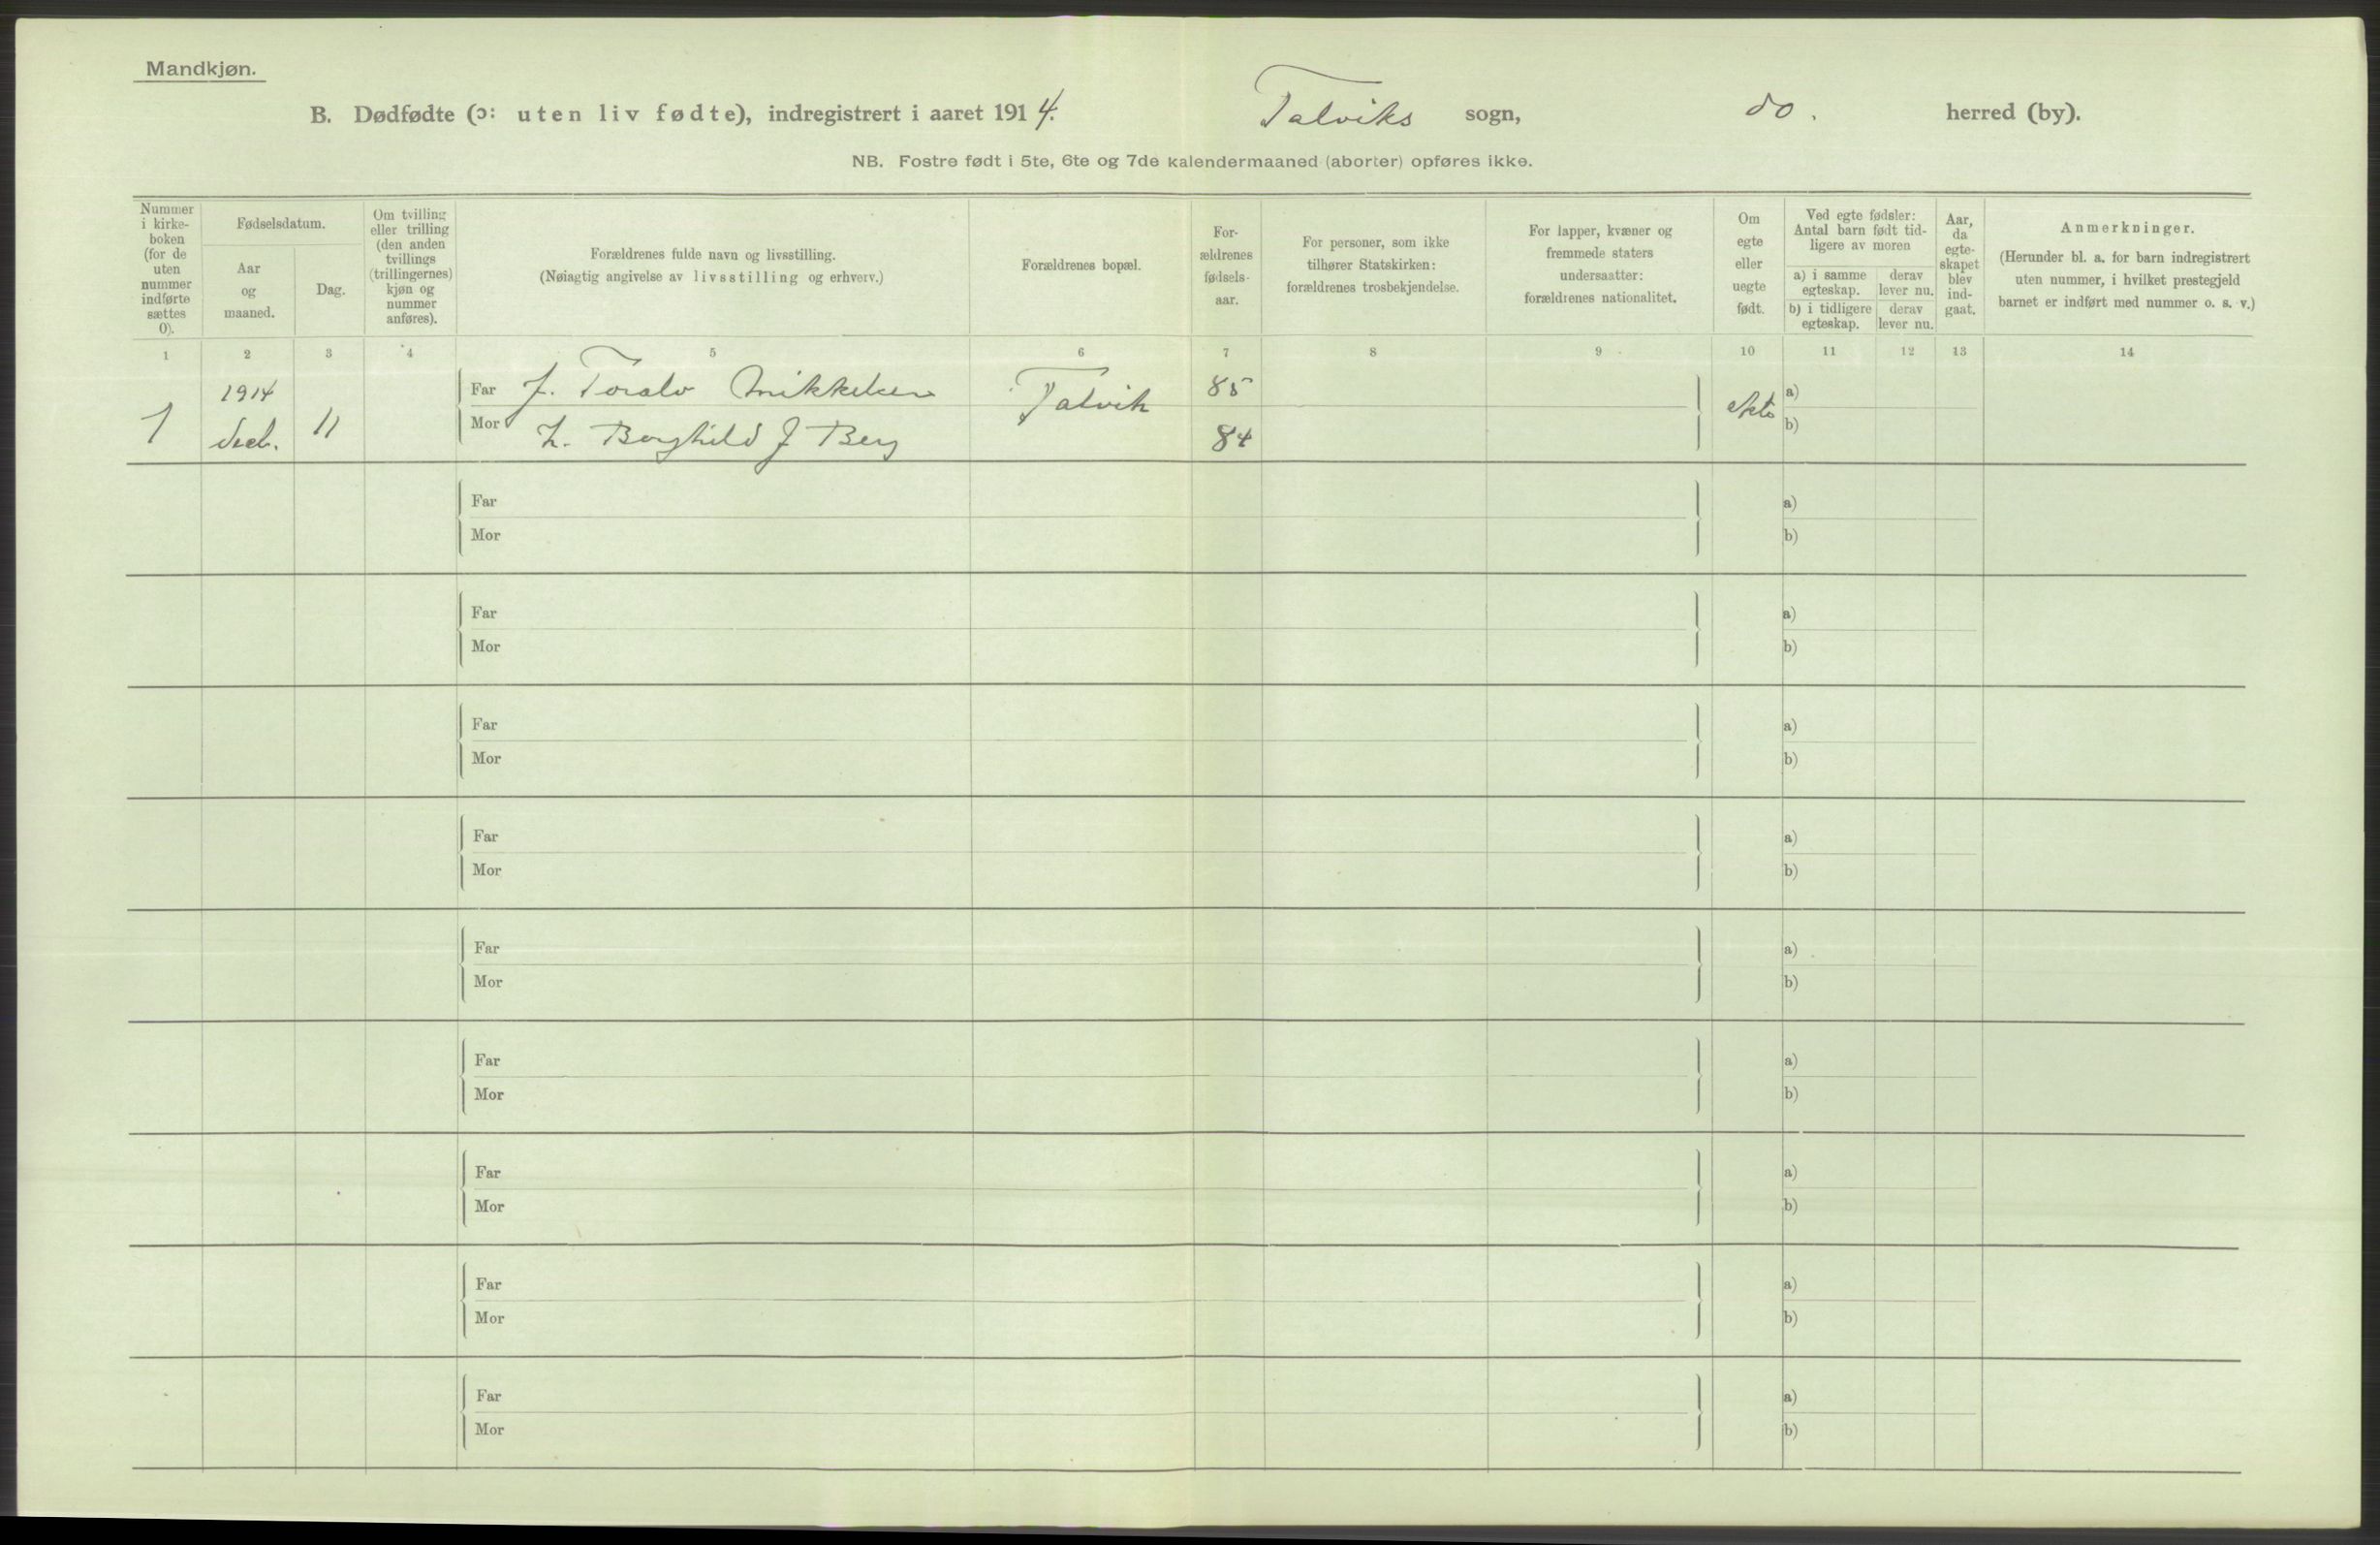 Mandkjøn.
B. Dødfødte (ɔ: uten liv fødte), indregistrert i aaret 1914. Talviks sogn, do. herred (by).
NB. Fostre født i 5te, 6te og 7de kalendermaaned (aborter) opføres ikke.
Nummer i kirke-boken (for de uten nummer indførte sættes 0).
Fødselsdatum.
Aar og maaned.
Dag.
Om tvilling eller trilling (den anden tvillings (trillingernes) kjøn og nummer anføres).
Forældrenes fulde navn og livsstilling.
(Nøiagtig angivelse av livsstilling og erhverv.)
Forældrenes bopæl.
For-ældrenes fødsels-aar.
For personer, som ikke tilhører Statskirken: forældrenes trosbekjendelse.
For lapper, kvæner og fremmede staters undersaatter: forældrenes nationalitet.
Om egte eller uegte født.
Ved egte fødsler: Antal barn født tid-ligere av moren
a) i samme egteskap.
derav lever nu.
b) i tidligere egteskap.
derav lever nu.
Aar, da egte-skapet blev ind-gaat.
Anmerkninger.
(Herunder bl. a. for barn indregistrert uten nummer, i hvilket prestegjeld barnet er indført med nummer o. s. v.)
1 2 3 4 5 6 7 8 9 10 11 12 13 14
1914 Far J. Toralv Mikkelsen Talvik 85 a)
1 decb. 11 Mor Borghild J Berg 84 b)
Far a)
Mor b)
Far a)
Mor b)
Far a)
Mor b)
Far a)
Mor b)
Far a)
Mor b)
Far a)
Mor b)
Far a)
Mor b)
Far a)
Mor b)
Far a)
Mor b)